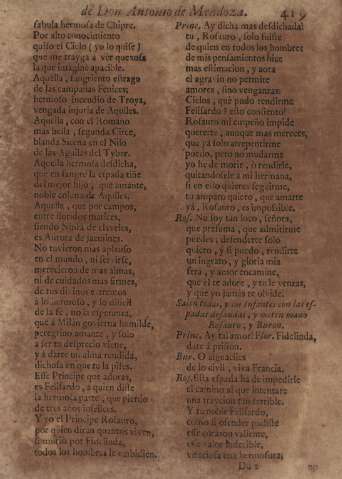 de Don Antonio de Mendoza. 419
fabula hermosa de Chipre.
Por alto conocimiento
quiso el Cielo (yo quise)
que me trayga à ver quexosa
la que imaginè apacible.
Aquella, sangriento estrago
de las campañas Fenices;
hermoso incendio de Troya,
vengada injuria de Aquiles.
Aquella, con el Romano
mas facil, segunda Circe,
blanda Sirena en el Nilo
de las Aguilas del Tyber.
Aquella hermosa desdicha,
que en sangre la espada tiñe
del mejor hijo, que amante,
noble coluna de Aquiles.
Aquella, que por campos,
entre floridos matices,
siendo Ninfa de claveles,
es Aurora de jazmines.
No tuvieron mas aplauso
en el mundo, ni ser
merecieron de mas almas,
ni de cuidados mas firmes,
de tus divinos extremos
à lo amoroso, y lo dificil
de la fe, no la esperanza,
que à Milàn govierna humilde,
peregrino amante, y solo
a ser tu desprecio viene,
y à darte un alma rendida,
dichosa en que tu la pises.
Esse Principe que adoras,
es Felisardo, à quien diste
la hermosa parte, que pierdo
de tres años infelices.
Y yo el Principe Rosauro,
por quien diràn quantos viven,
sumitiso por Fidelinda,
todos los hombres le embidien.
Princ. Ay dicha mas desdichada!
tu, Rosauro, solo fuiste
de quien en todos los hombres
de mis pensamientos hize
mas estimacion, y aora
el agravio no permite
amores, sino venganzas
Cielos, què pudo rendirme
Felisardo? esto consiento?
Rosauro mi empeño impide
quererte, aunque mas merece,
que yà solo arrepentirme
puedo, pero no mudarme
yo he de morir, ò rendirle,
quitandosele à mi hermana,
si en esto quieres seguirme,
tu amparo quiero, que amarte
yà, Rosauro, es impossible.
Ros. No soy tan loco, señora,
que presuma, que admitirme
puedes; defenderte solo
quiero, y si puedo, rendirte
un ingrato, y gloria mia
sera, y amor encamine,
que el te adore, y tu le venzas,
y que yo jamàs te olvide.
Salen todos, y dos Infantes con las es-
padas desnudas, y meten mano
Rosauro, y Buron.
Princ. Ay tal amor! Flor. Fidelinda,
date à prision.
Bur. O alignacies
de lo divil, viva Francia.
Ros. Esta espada ha de impedirle
el cambio al que intentare
una traycion tan terrible.
Y tu noble Felisardo,
como si ofender pudisse
esse corazon valiente,
noble, valor indecible,
vitoriosa una hermosura,
Dd 2 no